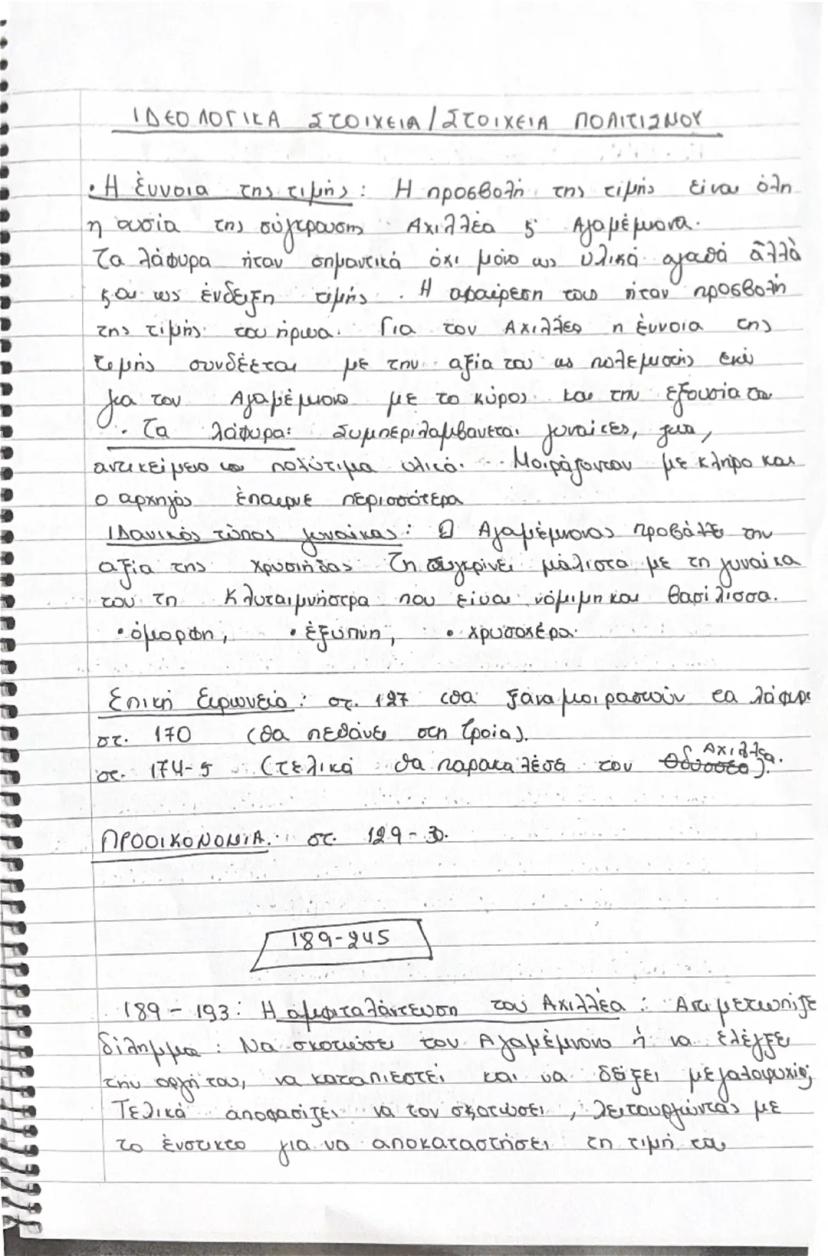 ΙΔΕΟΛΟΓΙΚΑ ΣΤΟΙΧΕΙΑ/ΣΤΟΙΧΕΙΑ ΠΟΛΙΤΙΣΜΟΥ
• Η έννοια της τιμής: Η προσβολή της τιμής είναι όλη
η ουσία της σύγκρουσης Αχιλλέα ς Αγαμέμνονα.
Τα λάφυρα ήταν σημαντικά όχι μόνο ως υλικά αγαθά άλλά
και ως ένδειξη τιμής. Η αφαίρεση τους ήταν προσβολή
της τιμής του ήρωα. Για τον Αχιλλέα η έννοια της
τιμής συνδέεται με την αξία του ως πολεμιστής ενώ
για τον Αγαμέμνονα με το κύρος και την εξουσία του
• Τα λάφυρα: Συμπεριλαμβανεται γυναίκες, ζώα,
αντικείμενα και πολύτιμα υλικά. Μοιράζονταν με κλήρο και
ο αρχηγός έπαιρνε περισσότερα
Ιδανικός τύπος γυναίκας: Ο Αγαμέμνονας προβάλλε την
αξία της Χρυσηίδας Τη συγκρίνει μάλιστα με τη γυναίκα
του τη Κλυταιμνήστρα που είναι νόμιμη και βασίλισσα.
• όμορφη, • έξυπνη, • χρυσοχέρα.
Επική Ειρωνεία: στ. 127 (θα ξαναμοιραστούν τα λάφυρα
στ. 170 (θα πεθάνει στη Τροία).
στ. 174-5 (τελικά θα παρακαλέσει τον Οδυσσέα Αχιλλέα).
ΠΡΟΟΙΚΟΝΟΜΙΑ. στ. 129-30.
189-245
189-193: Η αμφιταλάντευση του Αχιλλέα: Αντιμετωπίζει
δίλημμα: Να σκοτώσει τον Αγαμέμνονα ή να ελέγξει
την οργή του, να καταπιεστεί και να δείξει μεγαλοψυχία,
Τελικά αποφασίζει να τον σκοτώσει, λειτουργώντας με
το ένστικτο για να αποκαταστήσει τη τιμή του